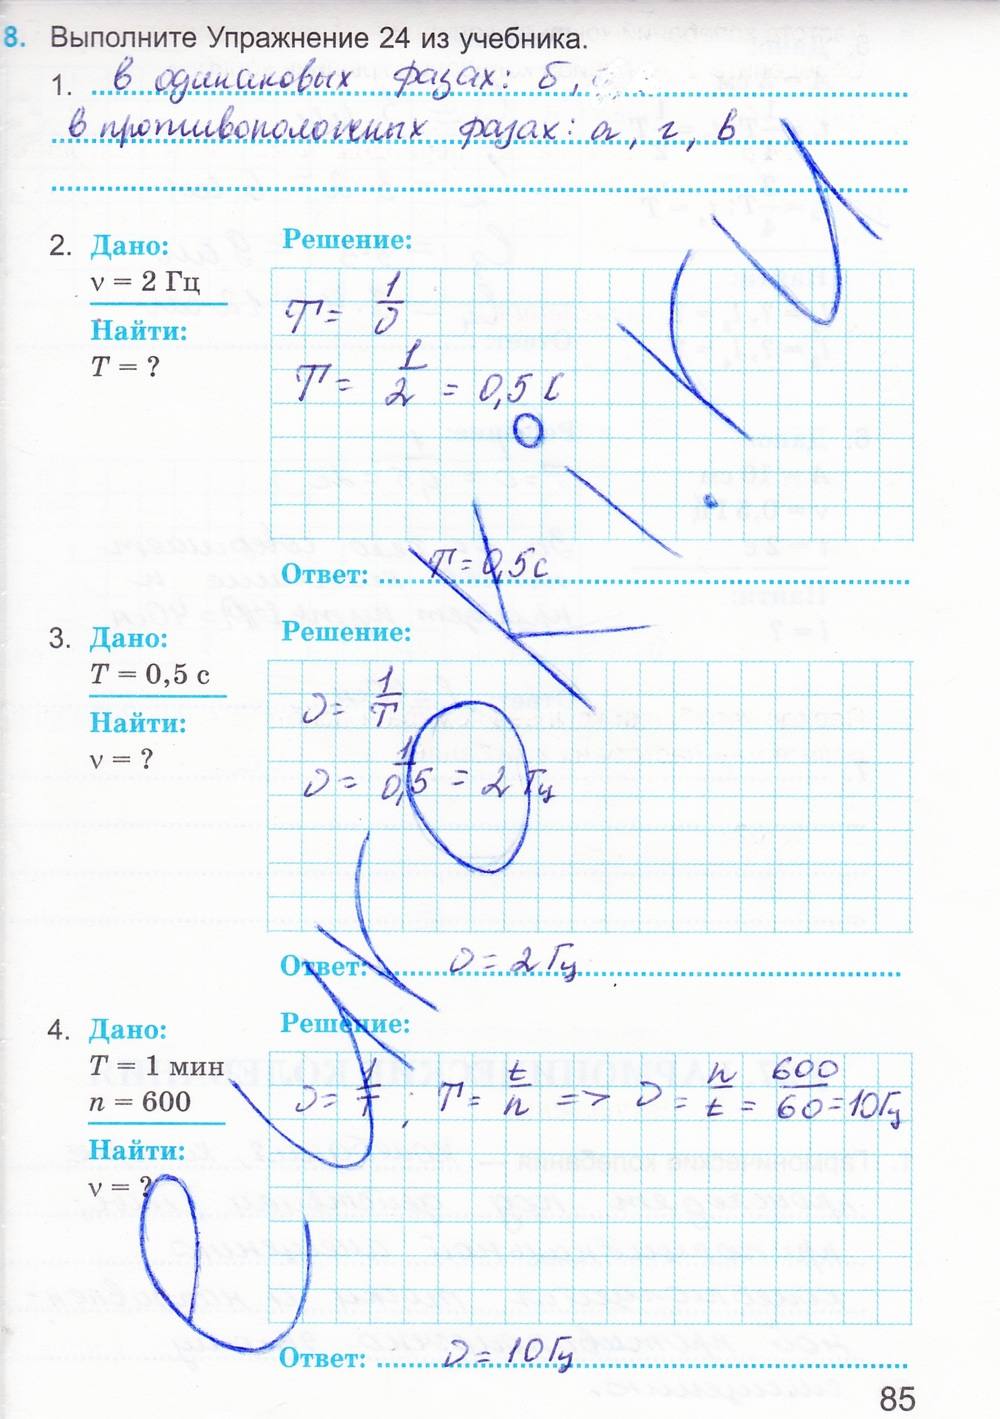 8. Выполните Упражнение 24 из учебника.
1. в одинаковых фазах: б,
в противоположных фазах: а, г, в
2. Дано:
ν = 2 Гц
Найти:
T = ?
Решение:
T = 1/υ
T = 1/2 = 0,5 с
Ответ: T = 0,5 с
3. Дано:
T = 0,5 с
Найти:
ν = ?
Решение:
υ = 1/T
υ = 1/0,5 = 2 Гц
Ответ: υ = 2 Гц
4. Дано:
T = 1 мин
n = 600
Найти:
ν = ?
Решение:
υ = 1/T ; T = t/n => υ = n/t = 600/60 = 10 Гц
Ответ: υ = 10 Гц
85